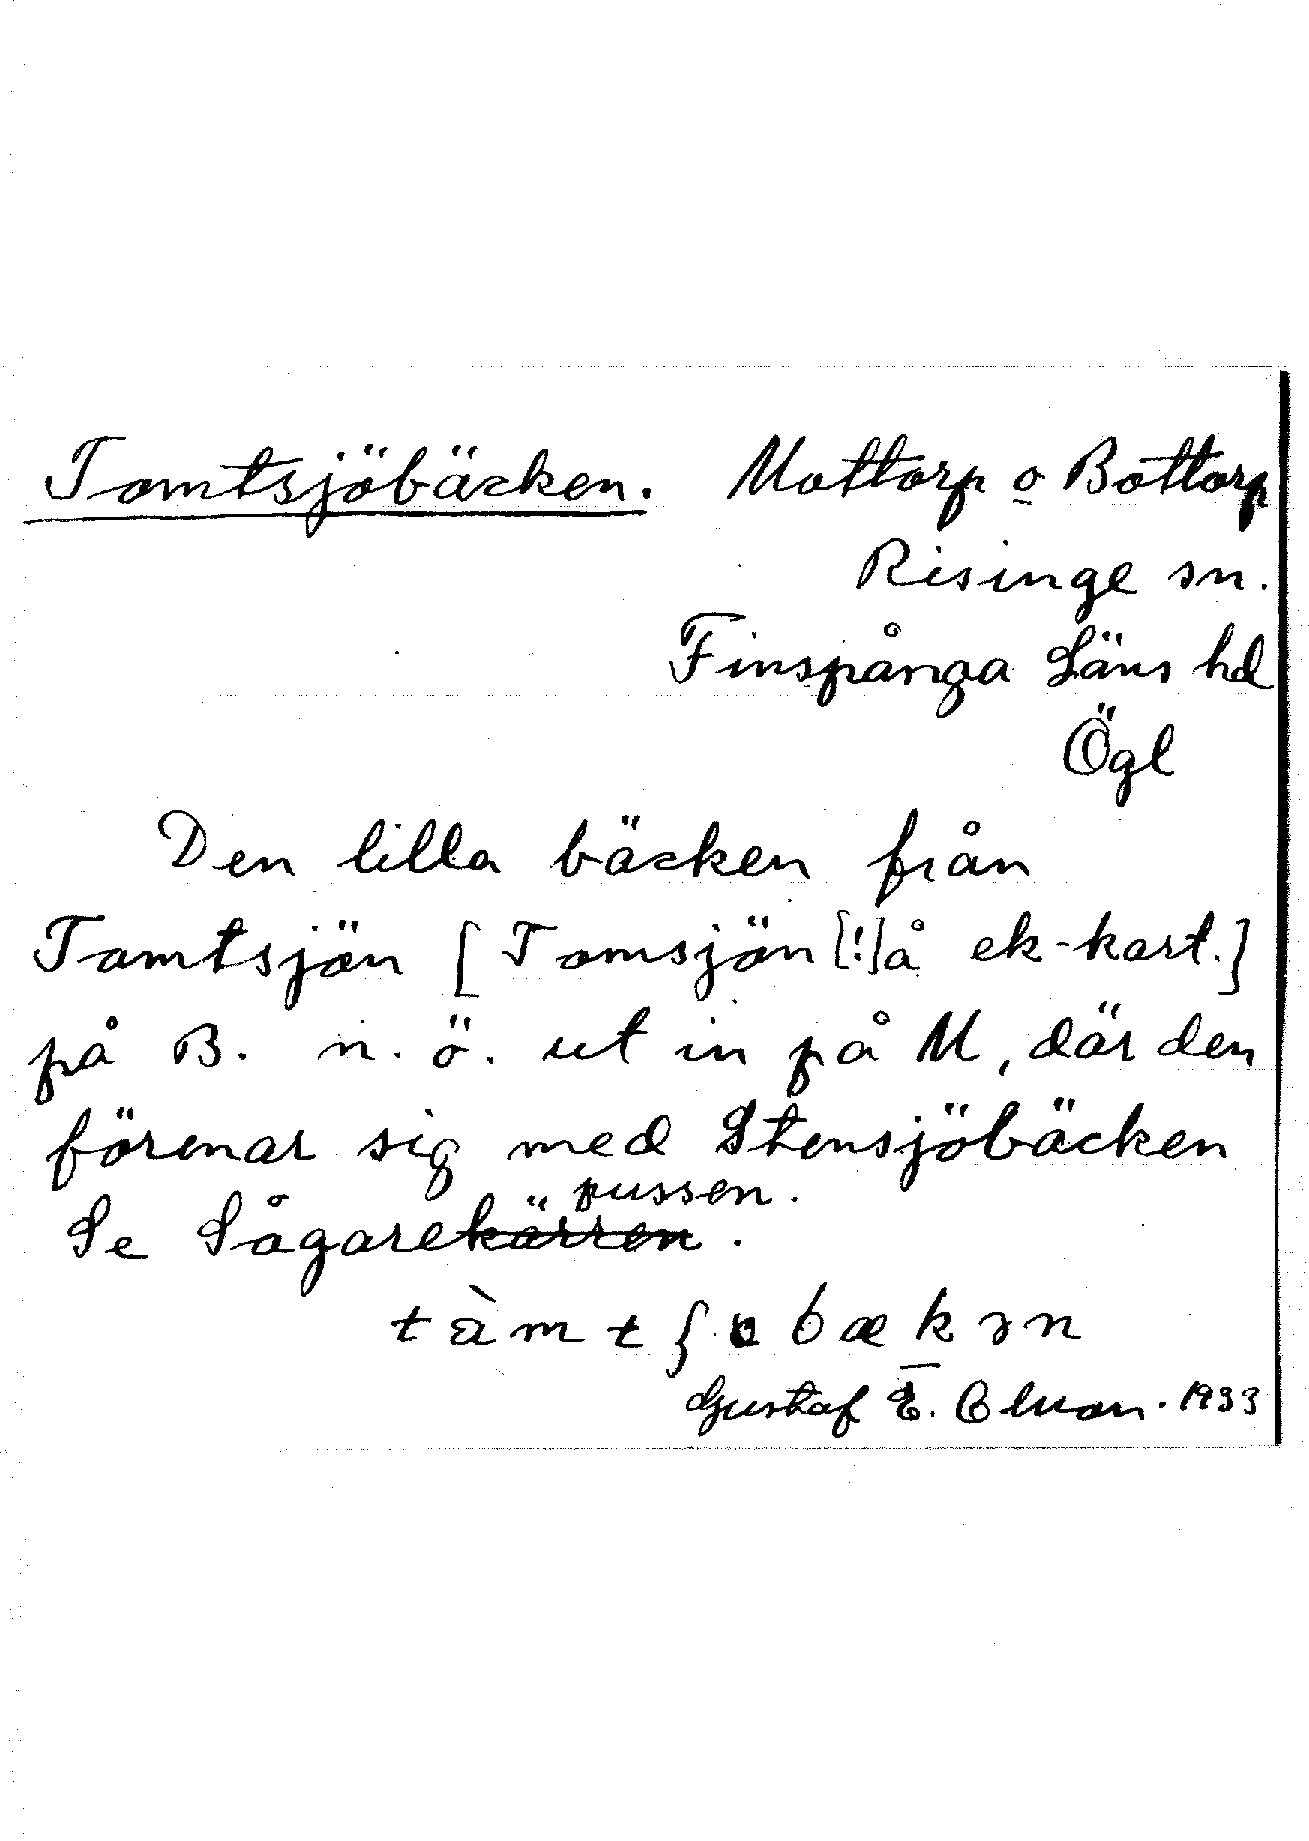 Tomtsjöbäcken. Mottorp o Bottorp
Risinge sn.
Finspånga Läns hd
Ögl
Den lilla bäcken från
Tomtsjön [Tomsjön [!] å ek-kart.]
på B. n. ö. ut in på M, där den
förenar sig med Stensjöbäcken
Se Sågarekärren pussen.
Gustaf E. 1933